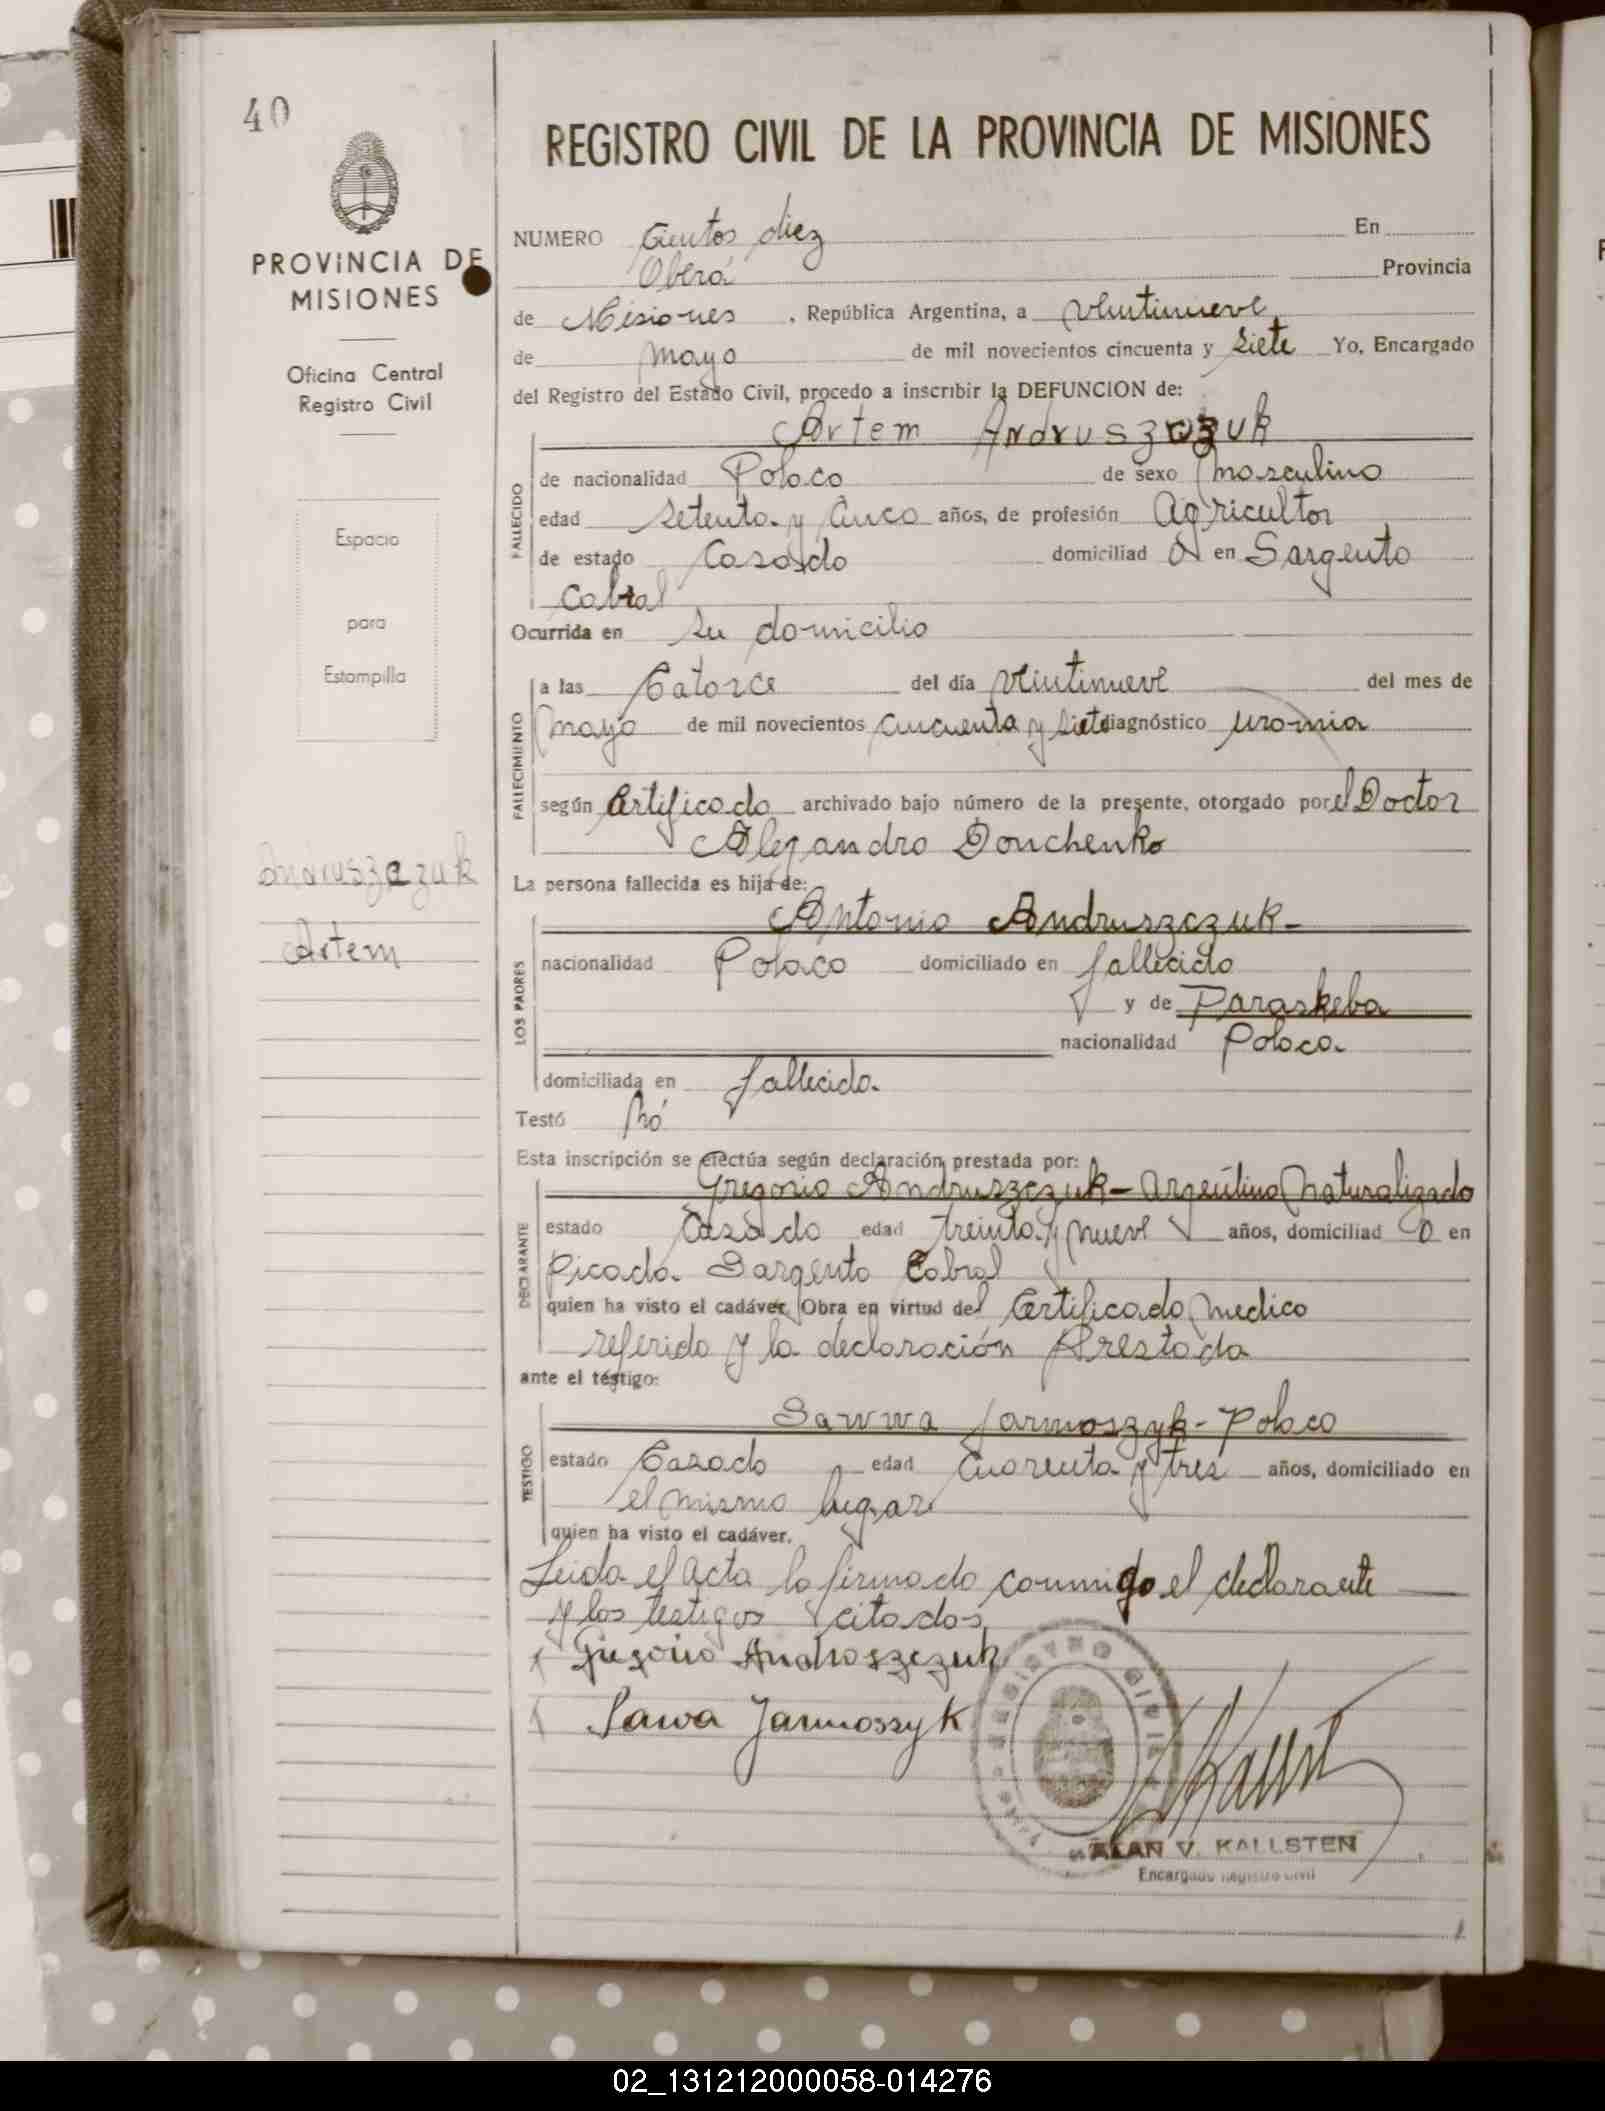 40
PROVINCIA DE
MISIONES
Oficina Central
Registro Civil
Espacio
para
Estampilla
Andruszczuk
Artem
REGISTRO CIVIL DE LA PROVINCIA DE MISIONES
NUMERO Cientos diez En
Oberá Provincia
de Misiones, República Argentina, a veintinueve
de mayo de mil novecientos cincuenta y siete Yo, Encargado
del Registro del Estado Civil, procedo a inscribir la DEFUNCION de:
Artem Andruszczuk
FALLECIDO
de nacionalidad Polaco de sexo masculino
edad setenta y cinco años, de profesión Agricultor
de estado Casado domiciliad o en Sargento
Cabral
Ocurrida en su domicilio
FALLECIMIENTO
a las Catorce del día veintinueve del mes de
mayo de mil novecientos cincuenta y siete diagnóstico uremia
según Certificado archivado bajo número de la presente, otorgado por el Doctor
Alejandro Donchenko
La persona fallecida es hija de:
LOS PADRES
Antonio Andruszczuk-
nacionalidad Polaco domiciliado en fallecido
y de Paraskeba
nacionalidad Polaca
domiciliada en fallecida
Testó Nó
Esta inscripción se efectúa según declaración prestada por:
DECLARANTE
Gregorio Andruszczuk- Argentino Naturalizado
estado Casado edad treinta y nueve años, domiciliad o en
Picada Sargento Cabral
quien ha visto el cadáver. Obra en virtud del Certificado medico
referido y la declaración Prestada
ante el téstigo:
TESTIGO
Sawwa Jarmoszyk- Polaco
estado Casado edad Cuarenta y tres años, domiciliado en
el mismo lugar
quien ha visto el cadáver.
Leida el acta la firmado conmigo el declarante
y los testigos citados
Gregorio Andruszczuk
Sawa Jarmoszyk
REGISTRO CIVIL
ALAN V. KALLSTEN
Encargado Registro Civil
02_131212000058-014276